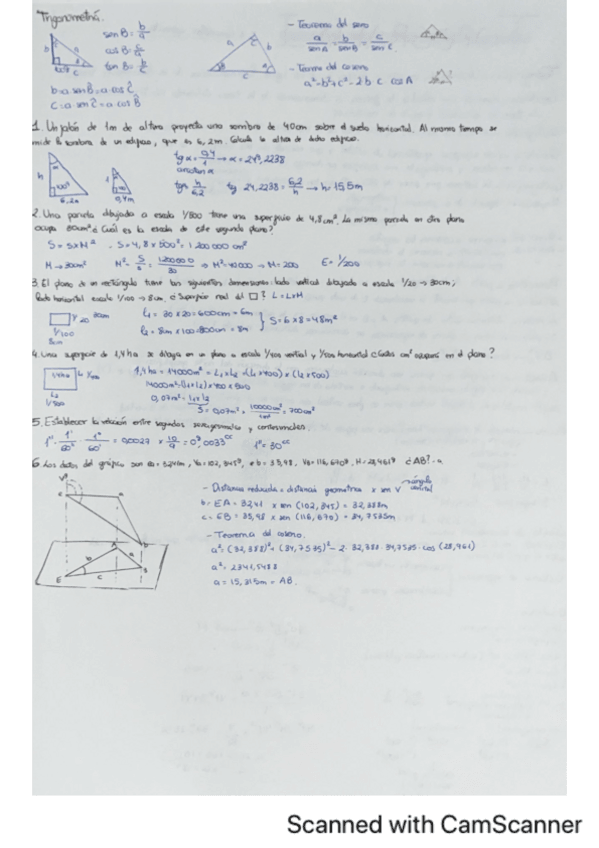 Trigonometría.
sen B = b/a
cos B = c/a
tan B = b/c
b = a sen B = a cos C
c = a sen C = a cos B
- Teorema del seno
a/sen A = b/sen B = c/sen C
- Teorema del coseno
a² = b² + c² - 2 b c cos A
1. Un jalón de 1m de altura proyecta una sombra de 40cm sobre el suelo horizontal. Al mismo tiempo se
mide la sombra de un edificio, que es 6,2m. Calcula la altura de dicho edificio.
h
6,2m
0,4m
arctan α
h = 15,5m
2. Una parcela dibujada a escala 1/500 tiene una superficie de 4,8cm². La misma parcela en otro plano
ocupa 30cm² ¿Cuál es la escala de este segundo plano?
S = s x M² . S = 4,8 x 500² = 1200000 cm²
M → 30cm² M² = S/s = 1200000/30 → M² = 40000 → M = 200 E = 1/200
3. El plano de un rectángulo tiene las siguientes dimensiones: lado vertical dibujado a escala 1/20 → 30cm;
lado horizontal escala 1/100 → 8cm. ¿Superficie real del □? L = L x M
1/20 30cm
1/100
8cm
L1 = 30 x 20 = 600cm = 6m
L2 = 8cm x 100 = 800cm = 8m
S = 6 x 8 = 48m²
4. Una superficie de 1,4ha se dibuja en un plano a escala 1/400 vertical y 1/500 horizontal ¿Cuántos cm² ocupará en el plano?
1,4ha
1/500
1,4ha = 14000m² = L1 x L2 = (L1 x 400) x (L2 x 500)
14000m² = (l1 x l2) x 400 x 500
0,07m² = l1 x l2
S = 0,07m² . 10000cm²/1m² = 700cm²
5. Establecer la relación entre segundos sexagesimales y centesimales.
1'' . 1'/60'' . 1°/60' = 0,00027 x 10/9
6. Los datos del gráfico son
- Distancia reducida = distancia geométrica x sen V ángulo vertical
b = EA = 32,41 x sen (102,345) = 32,388m
- Teorema del coseno.
a² = (32,388)² + (34,7535)² - 2 . 32,388 . 34,7535 . cos (28,461)
a = 15,315m = AB.
E
Scanned with CamScanner